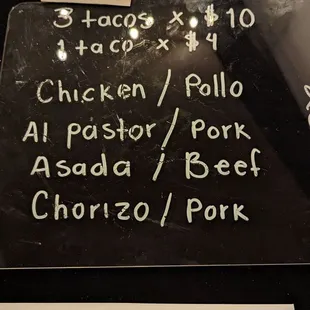 3 tacos x $10
1 taco x $4
Chicken / Pollo
Al pastor / Pork
Asada / Beef
Chorizo / Pork